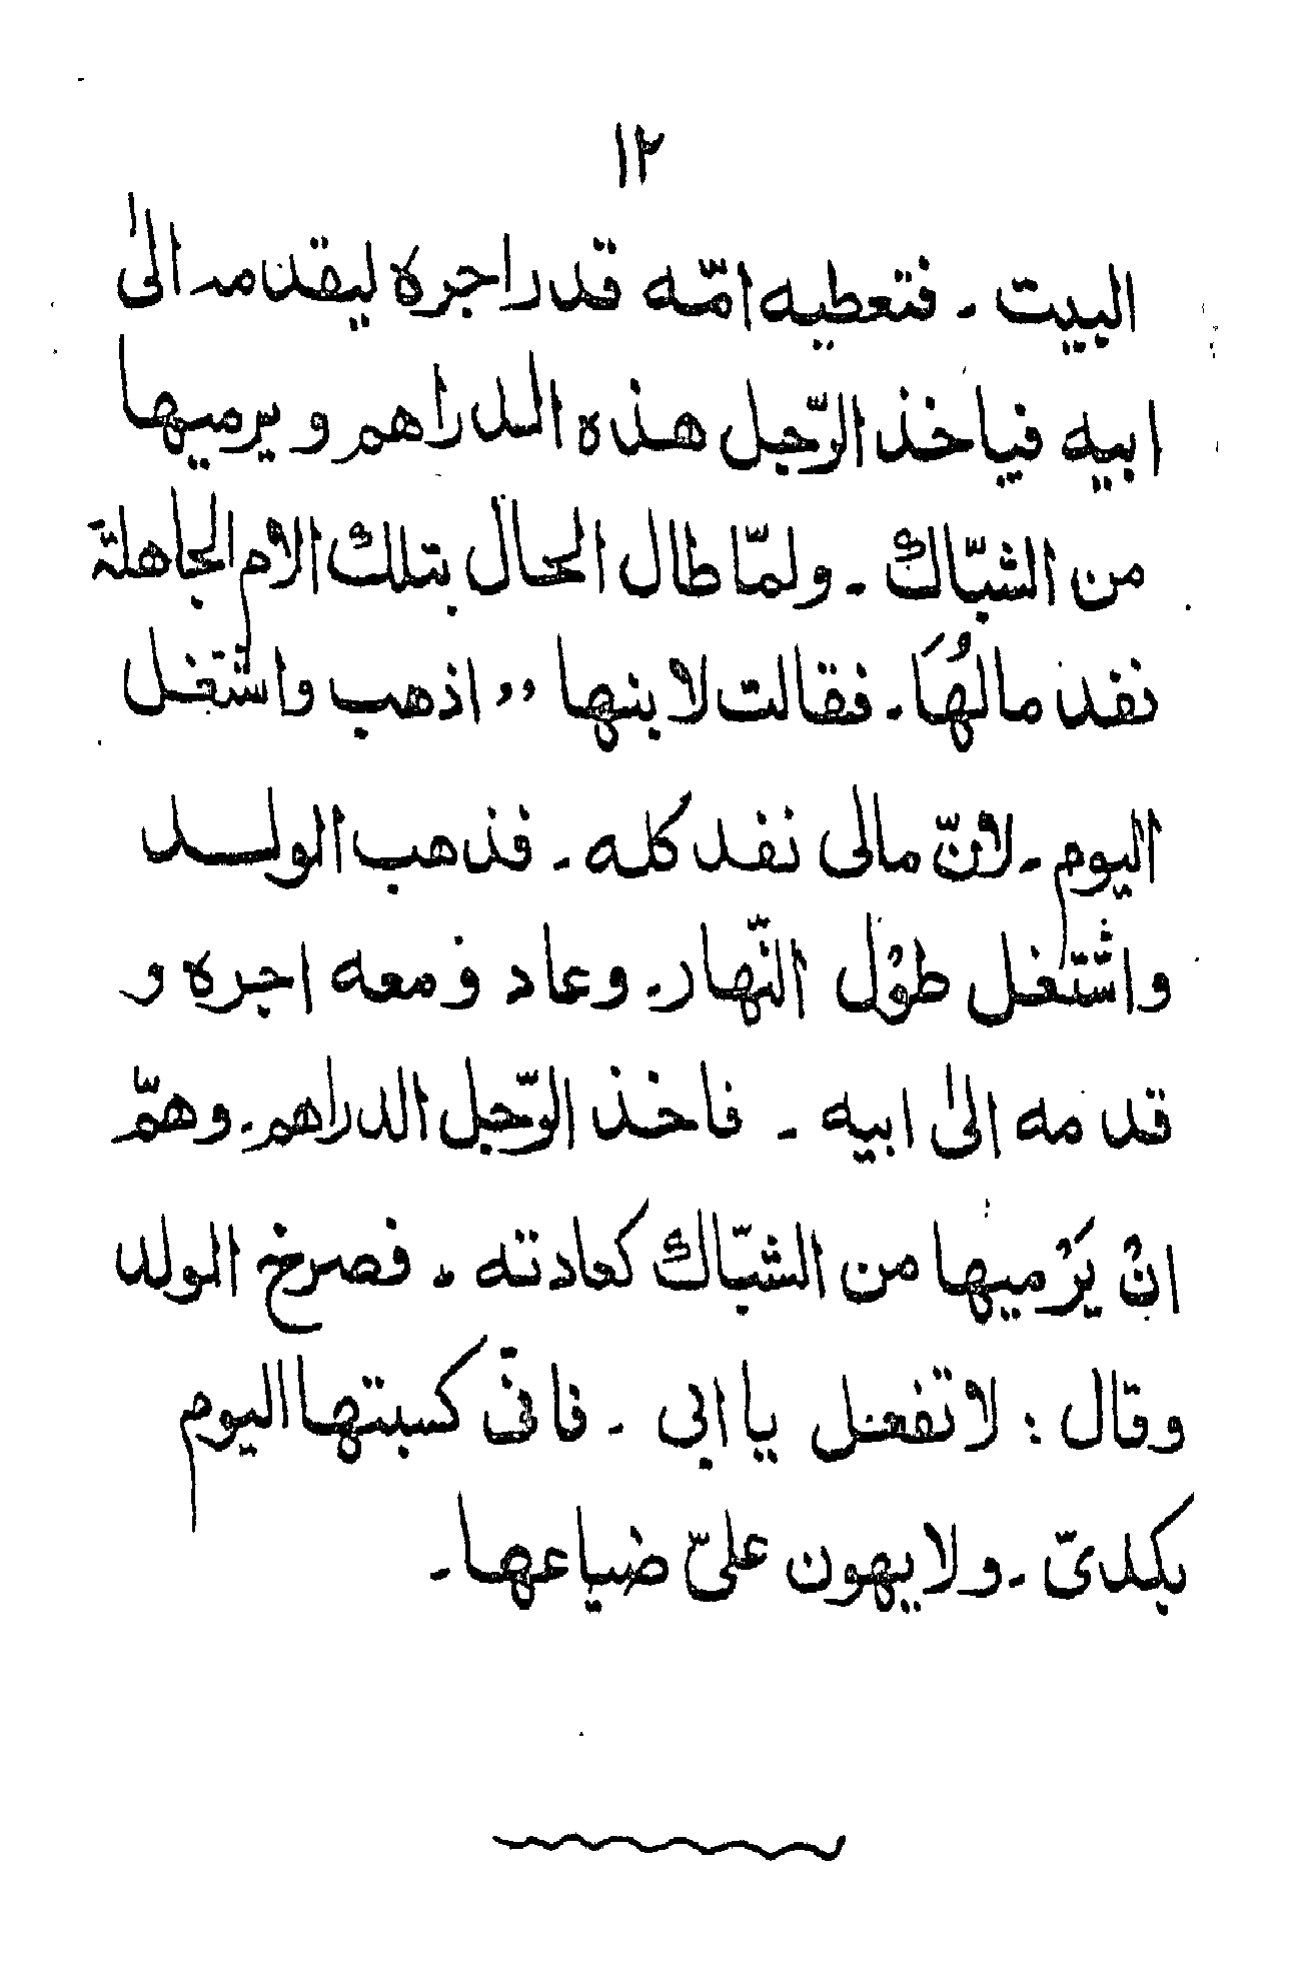 ١٢
البيت ـ فتعطيه امّه قدر اجره ليقدمه الىٰ
ابيه فياخذ الرّجل هذه الدراهم و يرميها
من الشبّاك ـ ولمّا طال الحال بتلك الام الجاهلة
نفد مالُهَا ـ فقالت لابنها ,, اذهب واشتغل
اليوم ـ لانّ مالى نفد كله ـ فذهب الولد
واشتغل طوْل النّهار ـ وعاد ومعه اجره و
قدمه الىٰ ابيه ـ فاخذ الرّجل الدراهم ـ وهمّ
انْ يَرْميها من الشبّاك كعادته ـ فصرخ الولد
وقال : لا تفعل يا ابى ـ فانّى كسبتها اليوم
بكدىّ ـ ولا يهون علىّ ضياعها ـ